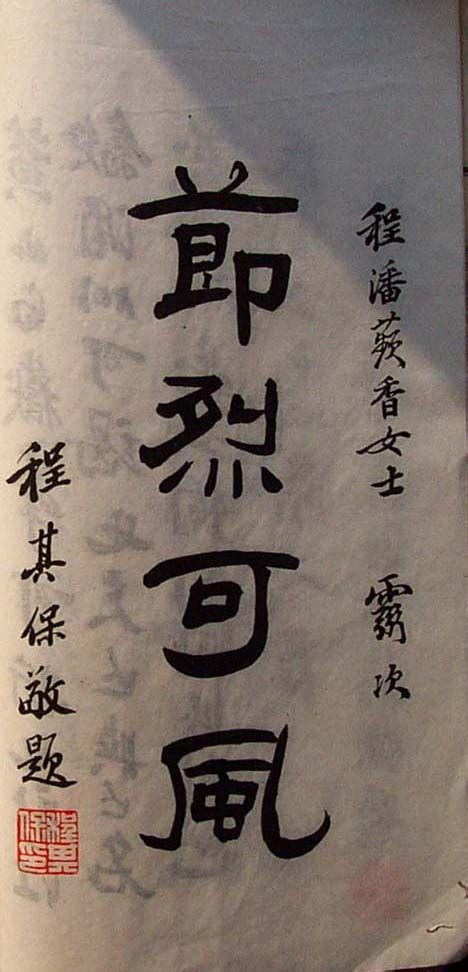 程潘香女士 靈次
節烈可風
程其保敬題
程其保印